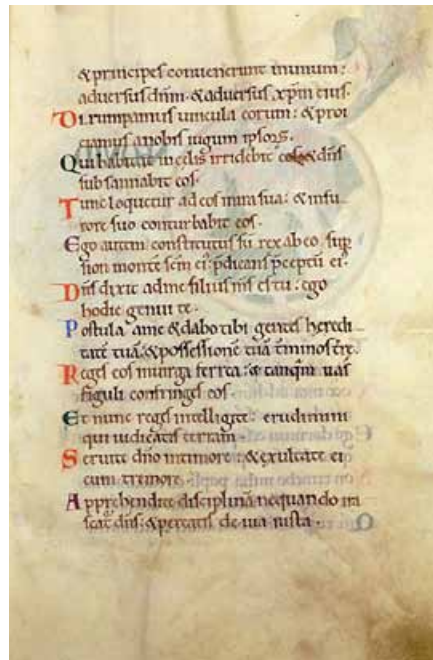 & principes convenerunt inunum:
adversus dñm · & adversus xp̄m eius.
Dirumpamus vincula eorum : & proi
ciamus a nobis iugum ipsoꝝ.
Qui habitat in celis irridebit eos & dñs
subsannabit eos.
Tunc loquetur ad eos in ira sua : & in fu
rore suo conturbabit eos.
Ego autem constitutus sū rex ab eo sup
sion montē scm̄ ei᾽: p̄dicans p̄ceptū ei᾽.
Dñs dixit ad me filius ms̄ es tu : ego
hodie genui te.
Postula a me & dabo tibi gentes heredi
tatē tuā: & possessionē tuā t̄minos t̄re.
Reges eos in virga ferrea : & tanq̄m vas
figuli confringes eos.
Et nunc reges intelligite : erudimini
qui iudicatis terram.
Servite dño in timore : & exultate ei
cum tremore.
Apprehendite disciplinā nequando ira
scat᾽ dñs : & pereatis de via iusta.